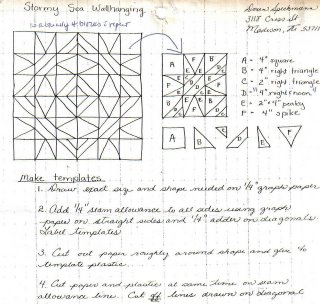 Stormy Sea Wallhanging
is already 4 blocks & repeat
3118 Cross St
Madison, Wi 53711
A = 4" square
B = 4" right triangle
C = 2" right triangle
E = 2"x4"
F = 4" spike
A
F
B
E
E
C
D
A
B
C
D
E
F
Make templates
1. Draw exact size and shape needed on 1/4" graph paper
2. Add 1/4" seam allowance to all sides using graph
paper on straight sides and 1/4" adder on diagonals
Label templates
3. Cut out paper roughly around shape and glue to
template plastic.
4. Cut paper and plastic at same time on seam
allowance line. Cut off lines drawn on diagonal